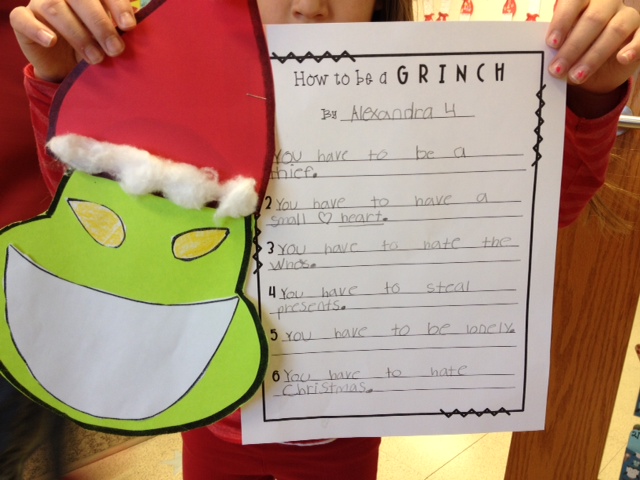 How to be a GRINCH
By Alexandra 4
You have to be a
thief.
2 You have to have a
small ♡ heart.
3 You have to hate the
whos.
4 You have to steal
presents.
5 You have to be lonely.
6 You have to hate
Christmas.